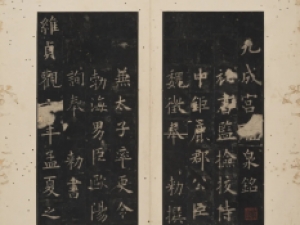 九成宮泉銘
祕書監撿挍侍
中鉅鹿郡公臣
魏徵奉 勑撰
兼太子率更令
勃海男臣歐陽
詢奉 勑書
維貞觀六年孟夏之